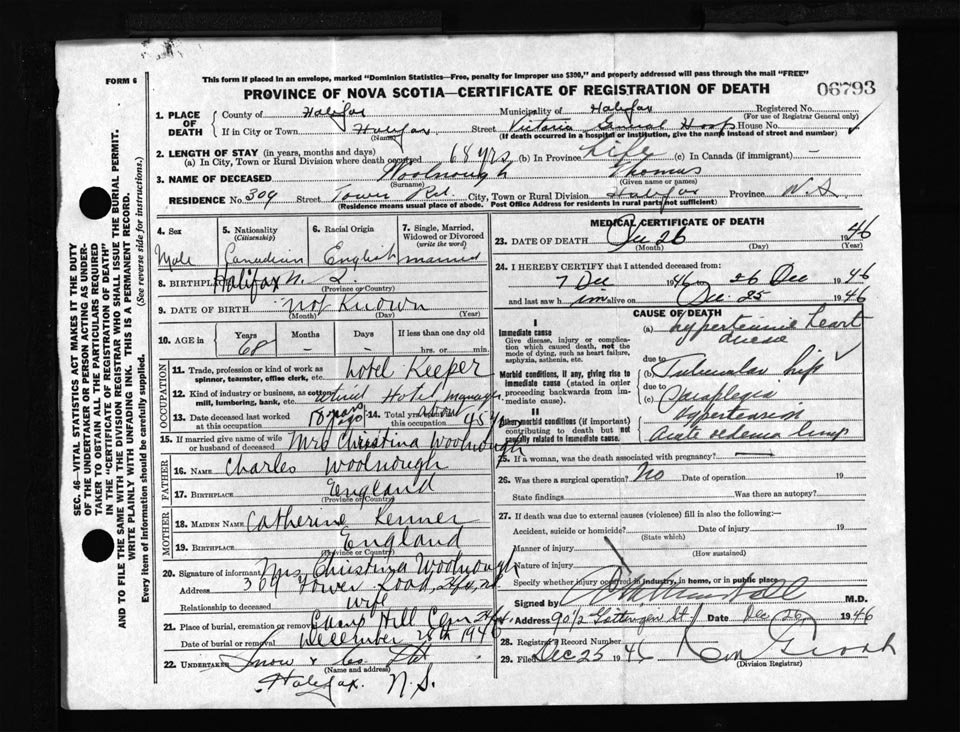 FORM 6
This form if placed in an envelope, marked "Dominion Statistics—Free, penalty for improper use $300," and properly addressed will pass through the mail "FREE"
PROVINCE OF NOVA SCOTIA—CERTIFICATE OF REGISTRATION OF DEATH
06793
1. PLACE OF DEATH County of Halifax Municipality of Halifax Registered No.
(For use of Registrar General only)
If in City or Town Halifax Street Victoria General Hosp House No.
(Name) (If death occurred in a hospital or institution, give the name instead of street and number)
2. LENGTH OF STAY (in years, months and days)
(a) In City, Town or Rural Division where death occurred 68 yrs (b) In Province Life (c) In Canada (if immigrant) —
3. NAME OF DECEASED Woolnough Thomas
(Surname) (Given name or names)
RESIDENCE No. 309 Street Tower Rd. City, Town or Rural Division Halifax Province N.S
(Residence means usual place of abode. Post Office Address for residents in rural parts not sufficient)
4. Sex 5. Nationality 6. Racial Origin 7. Single, Married, Widowed or Divorced
(Citizenship) (write the word)
Male Canadian English married
8. BIRTHPLACE Halifax N. S
(Province or Country)
9. DATE OF BIRTH not Known
(Month) (Day) (Year)
10. AGE in Years Months Days If less than one day old
68 - - hrs. or min.
OCCUPATION
11. Trade, profession or kind of work as spinner, teamster, office clerk, etc. Hotel Keeper
12. Kind of industry or business, as cotton mill, lumbering, bank, etc. Hotel Manager
13. Date deceased last worked at this occupation 18 years ago 14. Total yrs. 45 y
15. If married give name of wife or husband of deceased Mrs Christina Woolnough
FATHER
16. NAME Charles Woolnough
17. BIRTHPLACE England
(Province or Country)
MOTHER
18. MAIDEN NAME Catherine Renner
19. BIRTHPLACE England
(Province or Country)
20. Signature of informant Mrs Christina Woolnough
Address 309 Tower Road,
Relationship to deceased wife
21. Place of burial, cremation or removal Camp Hill Cem
Date of burial or removal December 28th 1946
22. UNDERTAKER Snow & Co. Ltd
(Name and address)
Halifax. N.S.
MEDICAL CERTIFICATE OF DEATH
23. DATE OF DEATH Dec 26 1946
(Month) (Day) (Year)
24. I HEREBY CERTIFY that I attended deceased from
7 Dec 1946 26 Dec 1946
and last saw him alive on Dec. 25 1946
CAUSE OF DEATH
I
Immediate cause
Give disease, injury or complication which caused death, not the mode of dying, such as heart failure, asphyxia, asthenia, etc.
(a) Hypertensive heart disease
due to
Morbid conditions, if any, giving rise to immediate cause (stated in order proceeding backwards from immediate cause).
(b) Tubercular hip
due to
(c) Paraplegia
Hypertension
II
Other morbid conditions (if important) contributing to death but not causally related to immediate cause.
acute oedema lungs
25. If a woman, was the death associated with pregnancy? —
26. Was there a surgical operation? No Date of operation 19
State findings Was there an autopsy?
27. If death was due to external causes (violence) fill in also the following:—
Accident, suicide or homicide? Date of injury 19
(State which)
Manner of injury
(How sustained)
Nature of injury
Specify whether injury occurred in industry, in home, or in public place
Signed by M.D.
Address 90 1/2 Gottingen St Date Dec 26 1946
28. Registrar's Record Number
29. Filed Dec 25 1946
(Division Registrar)
SEC. 46—VITAL STATISTICS ACT MAKES IT THE DUTY
OF THE UNDERTAKER OR PERSON ACTING AS UNDERTAKER TO OBTAIN ALL THE PARTICULARS REQUIRED
IN THE "CERTIFICATE OF REGISTRATION OF DEATH"
AND TO FILE THE SAME WITH THE DIVISION REGISTRAR WHO SHALL ISSUE THE BURIAL PERMIT.
WRITE PLAINLY WITH UNFADING INK. THIS IS A PERMANENT RECORD.
Every item of information should be carefully supplied. (See reverse side for instructions.)